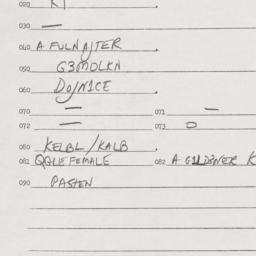 020 RI
030 —
040 A FULNAJTER
050 G3MOLKN
060 DOJN1CE
070 — 071 —
072 — 073 O
080 KELBL/KALB
081 QQUEFEMALE 082 A G11DINER K
090 PASTEN